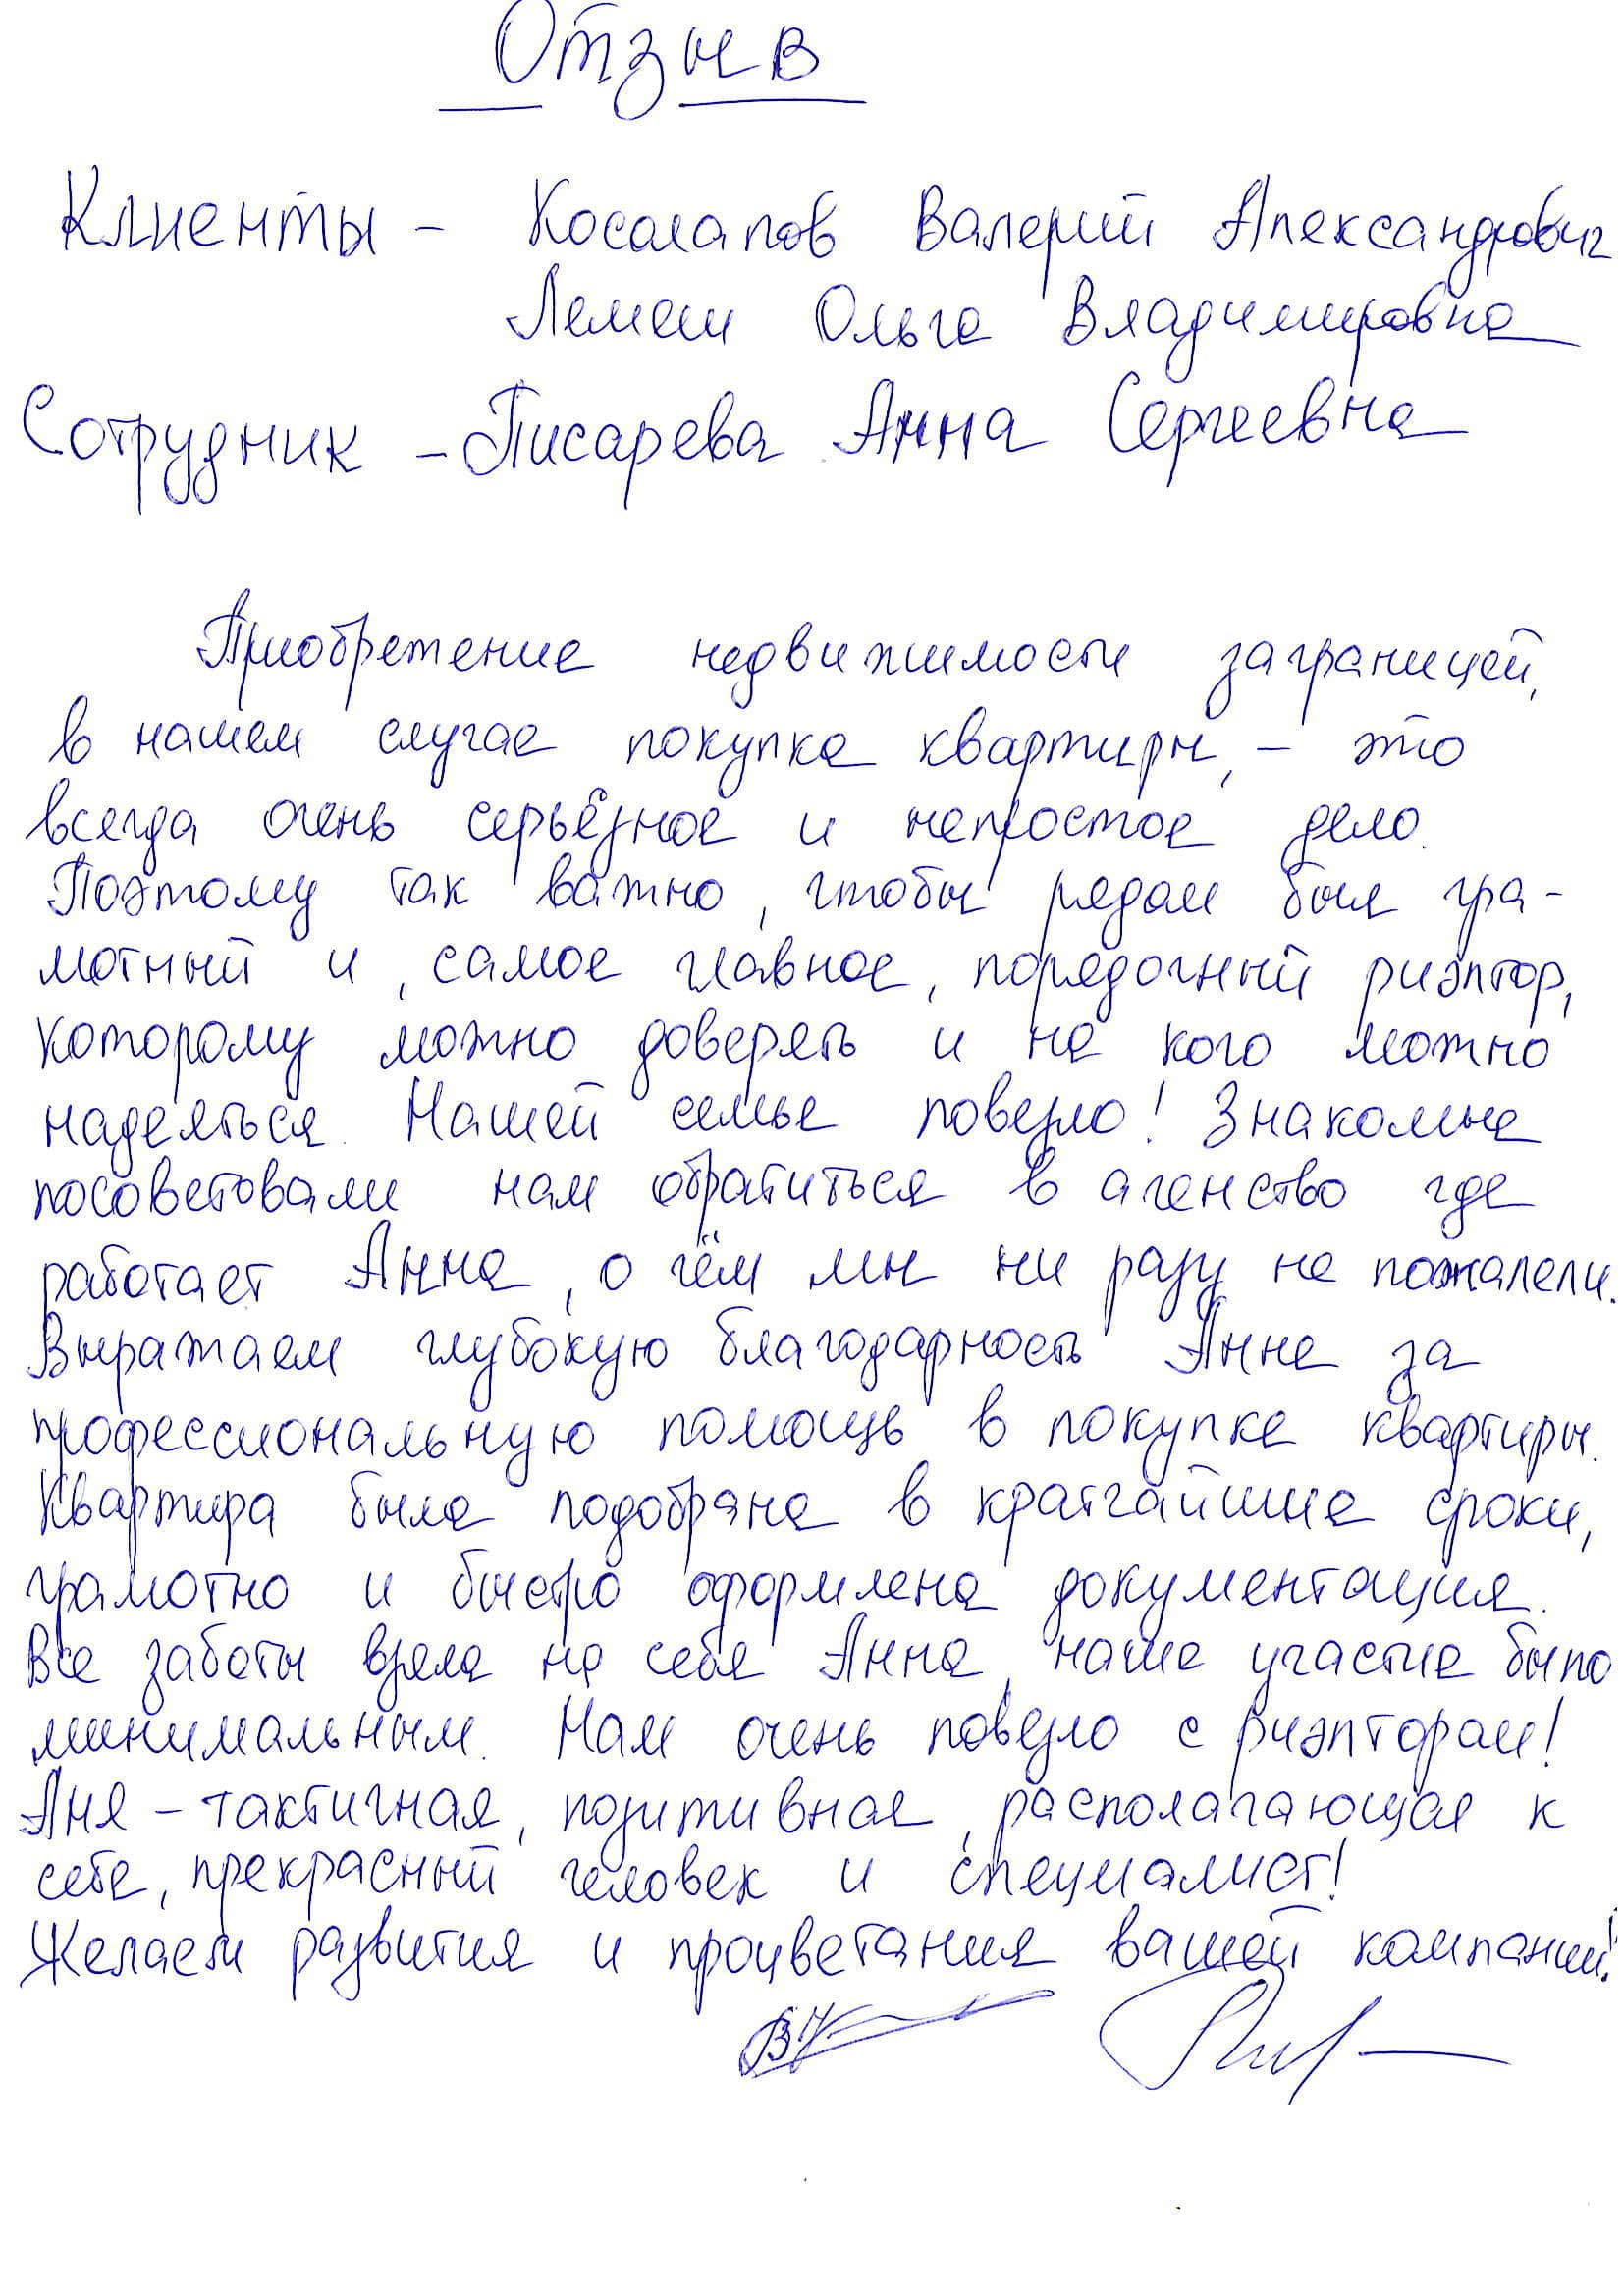 Отзыв
Клиенты - Косолапов Валерий Александрович
Лемеш Ольга Владимировна
Сотрудник - Писарева Анна Сергеевна
Приобретение недвижимости заграницей,
в нашем случае покупка квартиры, - это
всегда очень серьёзное и непростое дело.
Поэтому так важно, чтобы рядом был гра-
мотный и, самое главное, порядочный риэлтор,
которому можно доверять и на кого можно
надеяться. Нашей семье повезло! Знакомые
посоветовали нам обратиться в агенство где
работает Анна, о чём мы ни разу не пожалели.
Выражаем глубокую благодарность Анне за
профессиональную помощь в покупке квартиры.
Квартира была подобрана в кратчайшие сроки,
грамотно и быстро оформлена документация.
Все заботы взяла на себя Анна, наше участие было
минимальным. Нам очень повезло с риэлтором!
Аня - тактичная, позитивная, располагающая к
себе, прекрасный человек и специалист!
Желаем развития и процветания вашей компании!